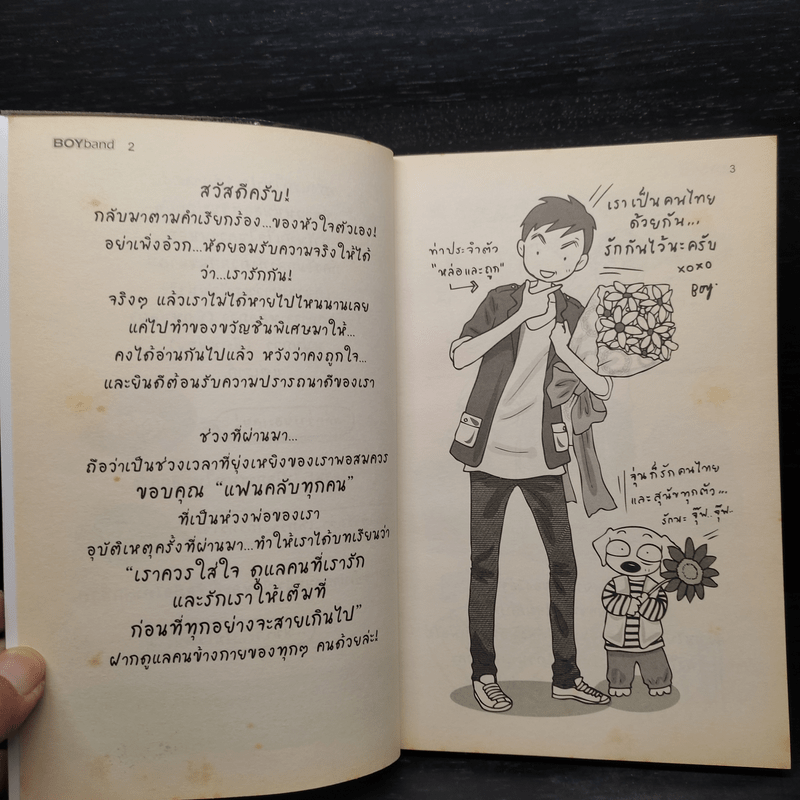 BOYband 2
สวัสดีครับ!
กลับมาตามคำเรียกร้อง...ของหัวใจตัวเอง!
อย่าเพิ่งอ้วก...หัดยอมรับความจริงให้ได้
ว่า...เรารักกัน!
จริงๆ แล้วเราไม่ได้หายไปไหนนานเลย
แค่ไปทำของขวัญชิ้นพิเศษมาให้...
คงได้อ่านกันไปแล้ว หวังว่าคงถูกใจ...
และยินดีต้อนรับความปรารถนาดีของเรา
ช่วงที่ผ่านมา...
ถือว่าเป็นช่วงเวลาที่ยุ่งเหยิงของเราพอสมควร
ขอบคุณ “แฟนคลับทุกคน”
ที่เป็นห่วงพ่อของเรา
อุบัติเหตุครั้งที่ผ่านมา...ทำให้เราได้บทเรียนว่า
“เราควรใส่ใจ ดูแลคนที่เรารัก
และรักเราให้เต็มที่
ก่อนที่ทุกอย่างจะสายเกินไป”
ฝากดูแลคนข้างกายของทุกๆ คนด้วยล่ะ!
3
เราเป็นคนไทย
ด้วยกัน...
รักกันไว้นะครับ
xoxo
Boy.
ท่าประจำตัว
"หล่อและถูก"
จุ่น ก็รักคนไทย
และสุนัขทุกตัว...
รักนะ จุ๊ฟ..จุ๊ฟ..